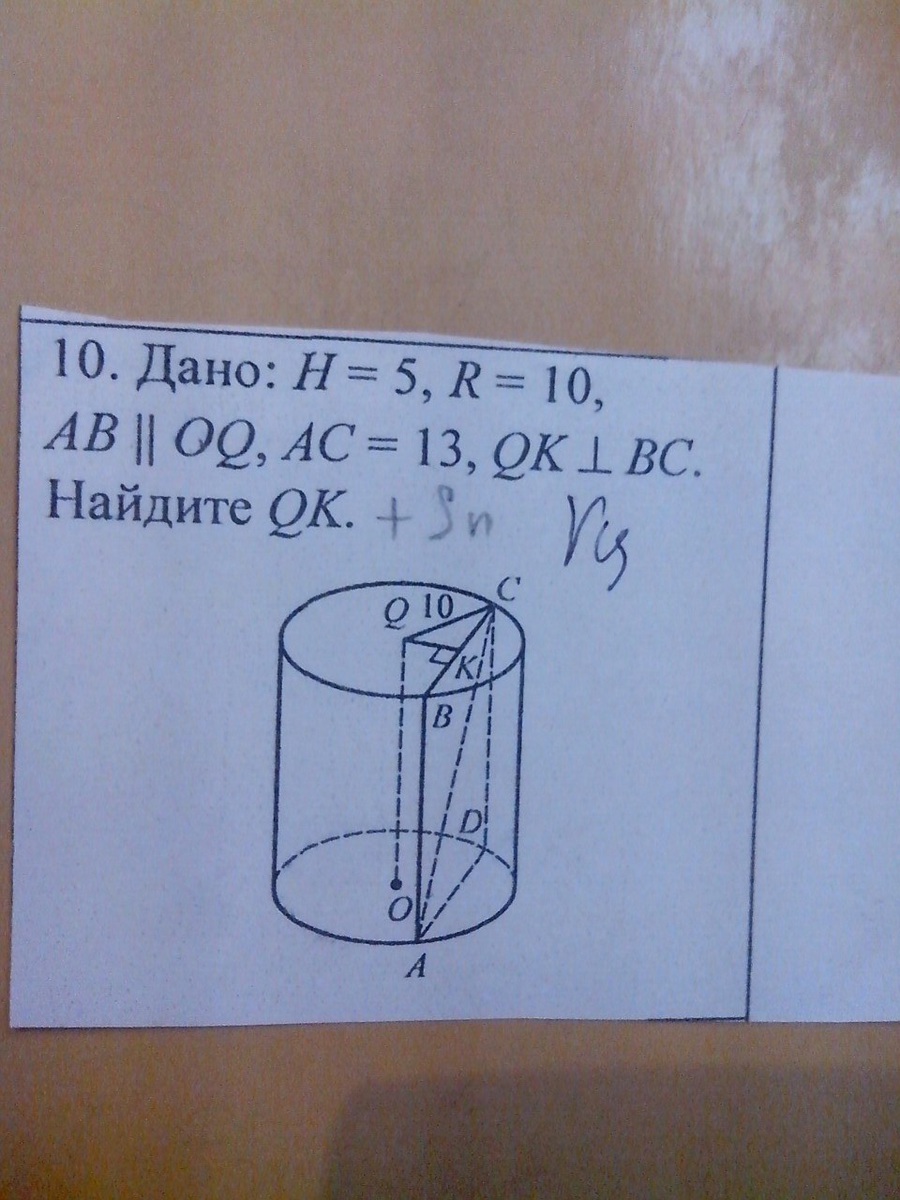 10. Дано: H = 5, R = 10,
AB || OQ, AC = 13, QK ⊥ BC.
Найдите QK. + Sп Vц
C
Q 10
K
B
D
O
A